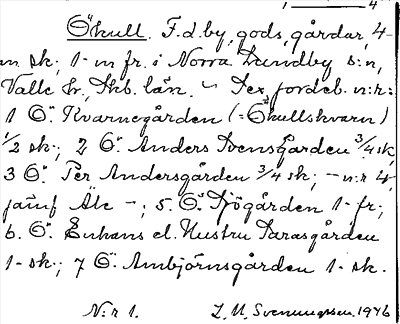 1 4
Ökull. F.d. by, gods, gårdar, 4-
m sk.; 1- m fr. i Norra Lundby s:n,
Valle hr, Skb. län. - Sex fordeb. n:r:
1 Ö. Kvarnegården (=Ökullskvarn)
1/2 sk.; 2 Ö. Anders Svensgården 3/4 sk,
3 Ö. Per Andersgården 3/4 sk; - n:r 4,
jämf Äle -; 5. Ö. Sjögården 1- fr;
6. Ö. Enhans el. Hustru Sarasgården
1- sk.; 7 Ö. Ambjörnsgården 1- sk.
N:r 1. L. M. Svenungsson. 1946